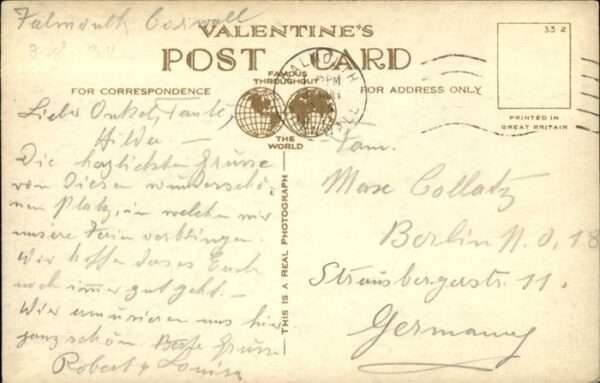 Falmouth Cornwall
VALENTINE'S
POST CARD
FAMOUS THROUGHOUT
THE WORLD
FOR CORRESPONDENCE
FOR ADDRESS ONLY
33 Z
PRINTED IN
GREAT BRITAIN
FALMOUTH
PM
THIS IS A REAL PHOTOGRAPH
Liebe Onkel, Tante,
Hilde —
Die herzlichsten Grüsse
von diesen wunderschö-
nen Platz, in welchen wir
unsere Ferien verbringen.
Wir hoffen dass es Euch
noch immer gut geht. —
Wir amüsieren uns hier
ganz schön Beste Grüsse
Robert & Louise
Fam.
Max Collatz
Berlin N.O. 18
Strausbergerstr. 11.
Germany